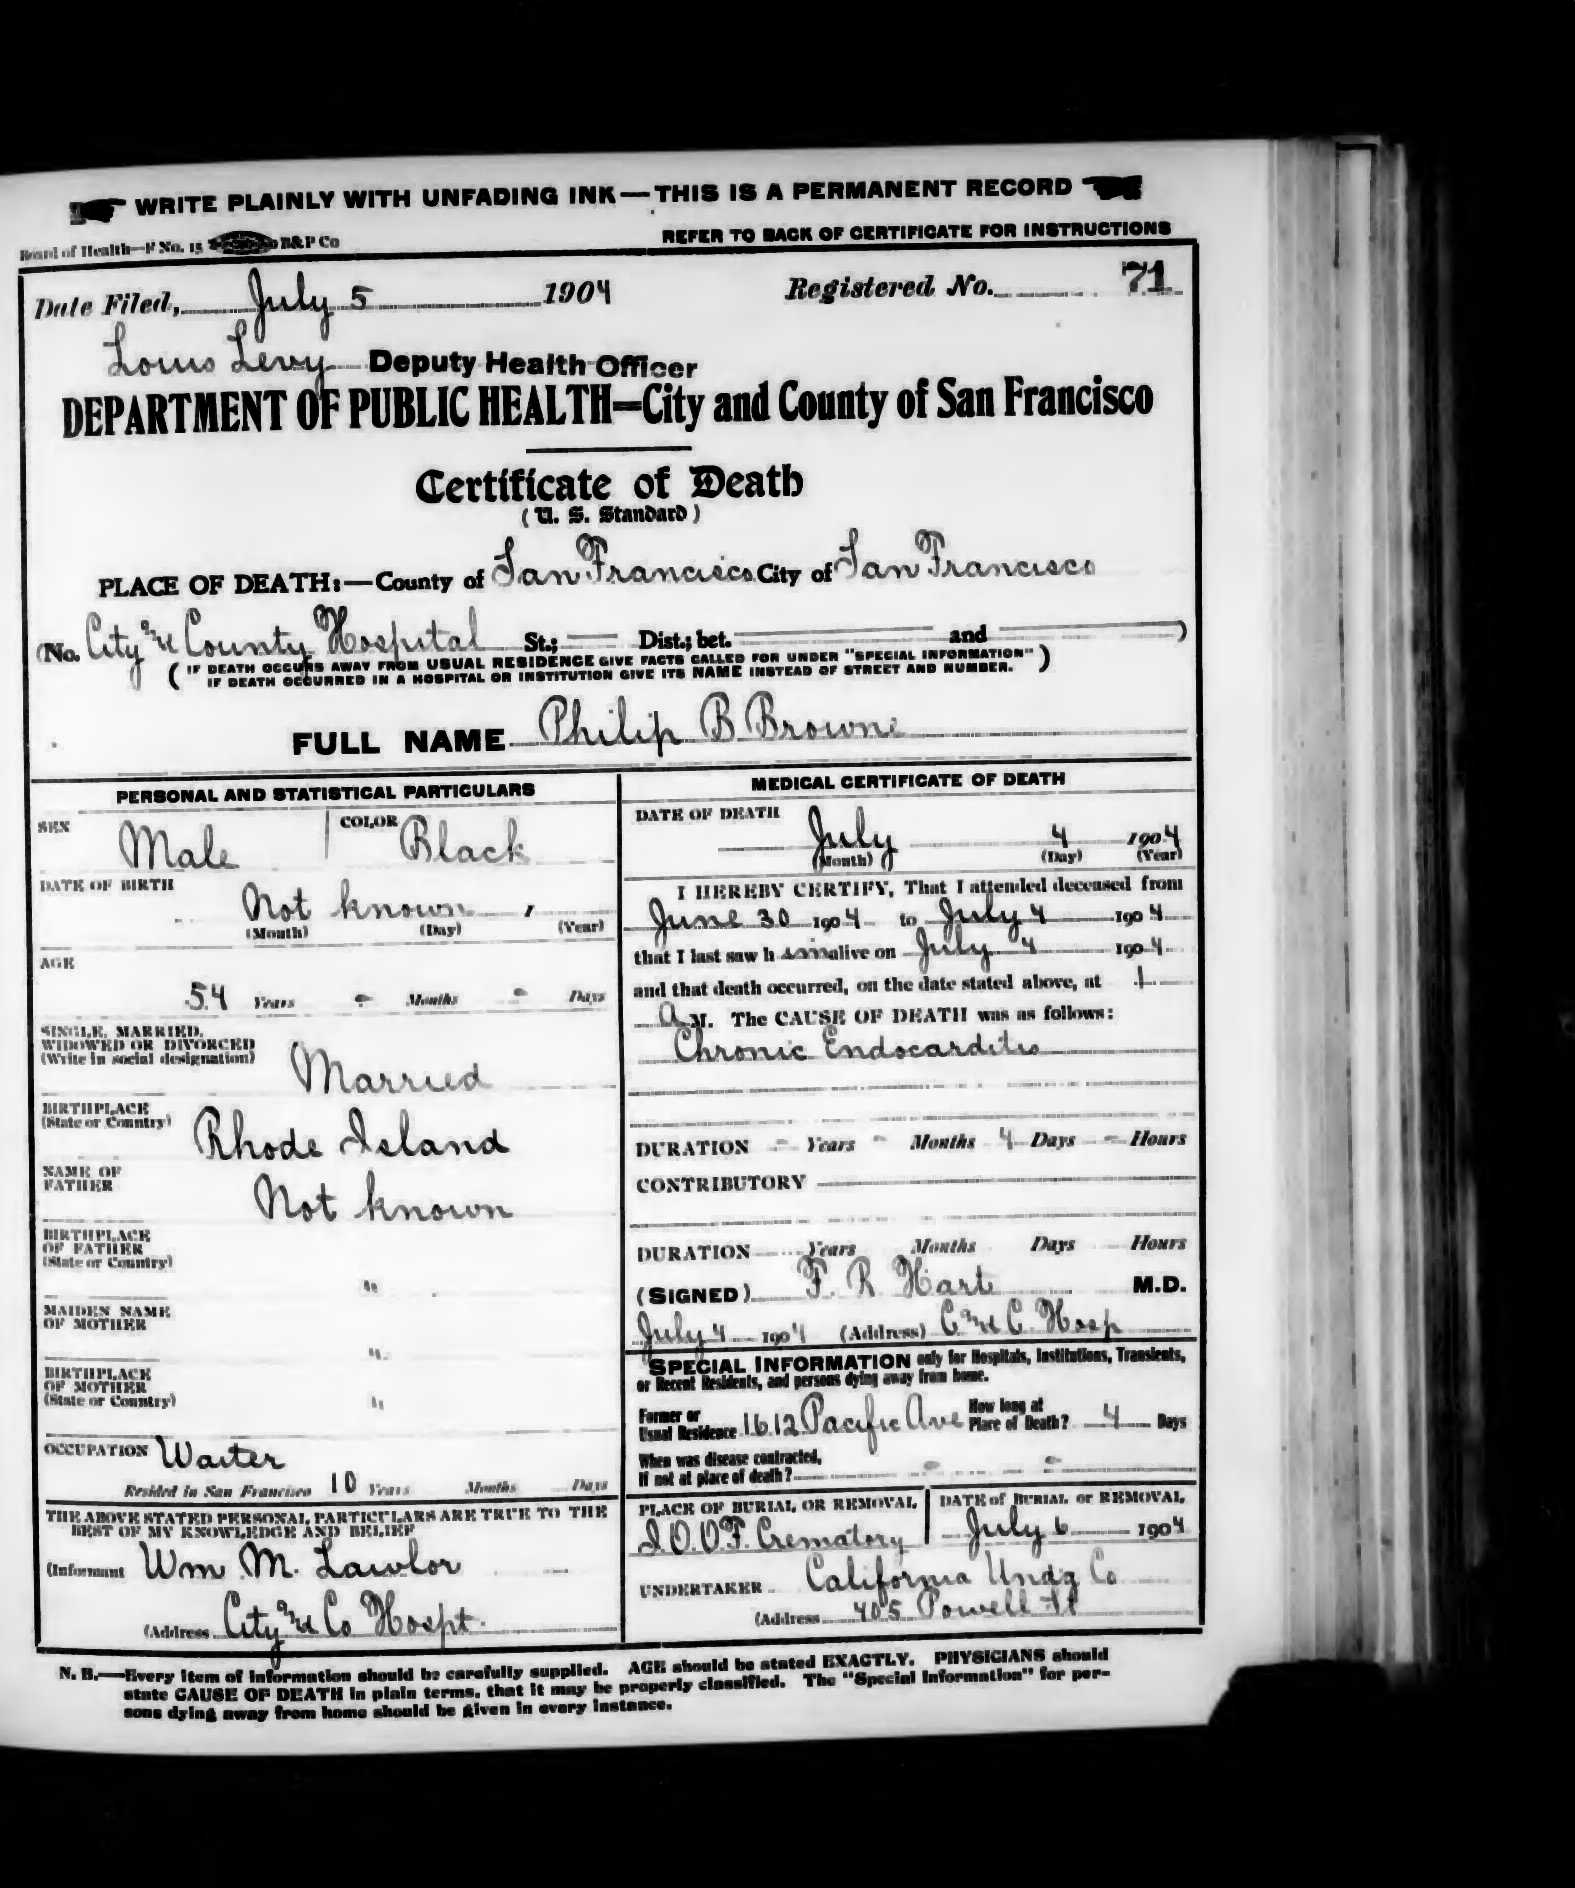 WRITE PLAINLY WITH UNFADING INK—THIS IS A PERMANENT RECORD
Board of Health—F No. 15 B&P Co
REFER TO BACK OF CERTIFICATE FOR INSTRUCTIONS
Date Filed, July 5 1904 Registered No. 71
Louis Levy Deputy Health Officer
DEPARTMENT OF PUBLIC HEALTH—City and County of San Francisco
Certificate of Death
(U. S. Standard)
PLACE OF DEATH:—County of San Francisco City of San Francisco
(No. City and County Hospital St.; Dist.; bet. and )
( IF DEATH OCCURS AWAY FROM USUAL RESIDENCE GIVE FACTS CALLED FOR UNDER "SPECIAL INFORMATION" )
IF DEATH OCCURRED IN A HOSPITAL OR INSTITUTION GIVE ITS NAME INSTEAD OF STREET AND NUMBER.
FULL NAME Philip B Browne
PERSONAL AND STATISTICAL PARTICULARS
SEX Male COLOR Black
DATE OF BIRTH
Not known
(Month) (Day) (Year)
AGE
54 Years - Months - Days
SINGLE, MARRIED,
WIDOWED OR DIVORCED
(Write in social designation)
Married
BIRTHPLACE
(State or Country)
Rhode Island
NAME OF
FATHER
Not known
BIRTHPLACE
OF FATHER
(State or Country)
"
MAIDEN NAME
OF MOTHER
"
BIRTHPLACE
OF MOTHER
(State or Country)
"
OCCUPATION Waiter
Resided in San Francisco 10 Years Months Days
THE ABOVE STATED PERSONAL PARTICULARS ARE TRUE TO THE
BEST OF MY KNOWLEDGE AND BELIEF
(Informant Wm M. Lawlor
(Address City and Co Hospt.
MEDICAL CERTIFICATE OF DEATH
DATE OF DEATH
July 4 1904
(Month) (Day) (Year)
I HEREBY CERTIFY, That I attended deceased from
June 30 1904 to July 4 1904
that I last saw h im alive on July 4 1904
and that death occurred, on the date stated above, at 1
A M. The CAUSE OF DEATH was as follows:
Chronic Endocarditis
DURATION - Years - Months 4 Days - Hours
CONTRIBUTORY
DURATION Years Months Days Hours
(SIGNED) F. R. Harte M.D.
July 4 1904 (Address) C and C. Hosp
SPECIAL INFORMATION only for Hospitals, Institutions, Transients,
or Recent Residents, and persons dying away from home.
Former or
Usual Residence 1612 Pacific Ave How long at
Place of Death? 4 Days
When was disease contracted,
If not at place of death? - -
PLACE OF BURIAL OR REMOVAL DATE of BURIAL or REMOVAL
I.O.O.F. Crematory July 6 1904
UNDERTAKER California Undg Co
(Address 405 Powell St
N. B.—Every item of information should be carefully supplied. AGE should be stated EXACTLY. PHYSICIANS should
state CAUSE OF DEATH in plain terms, that it may be properly classified. The "Special Information" for per-
sons dying away from home should be given in every instance.